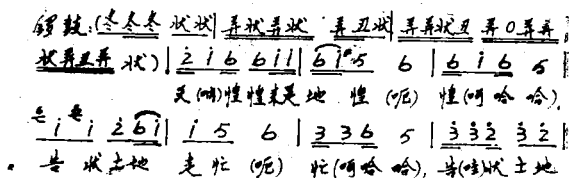 锣鼓:(冬冬冬 状状| 弄状弄状 弄丑状| 弄弄状丑 弄0弄弄
状弄丑弄 状)| 2 1 6 6 1 1 | 6 1 5 6 | 6 1 6 5 |
天(呐)惶惶来是地 惶 (呃) 惶(呵哈哈),
1 1 2 6 1 | 1 5 6 | 3 3 6 5 | 3 3 2 3 2 |
告状土地 走忙 (呃) 忙(呵哈哈), 告(哇)状土地